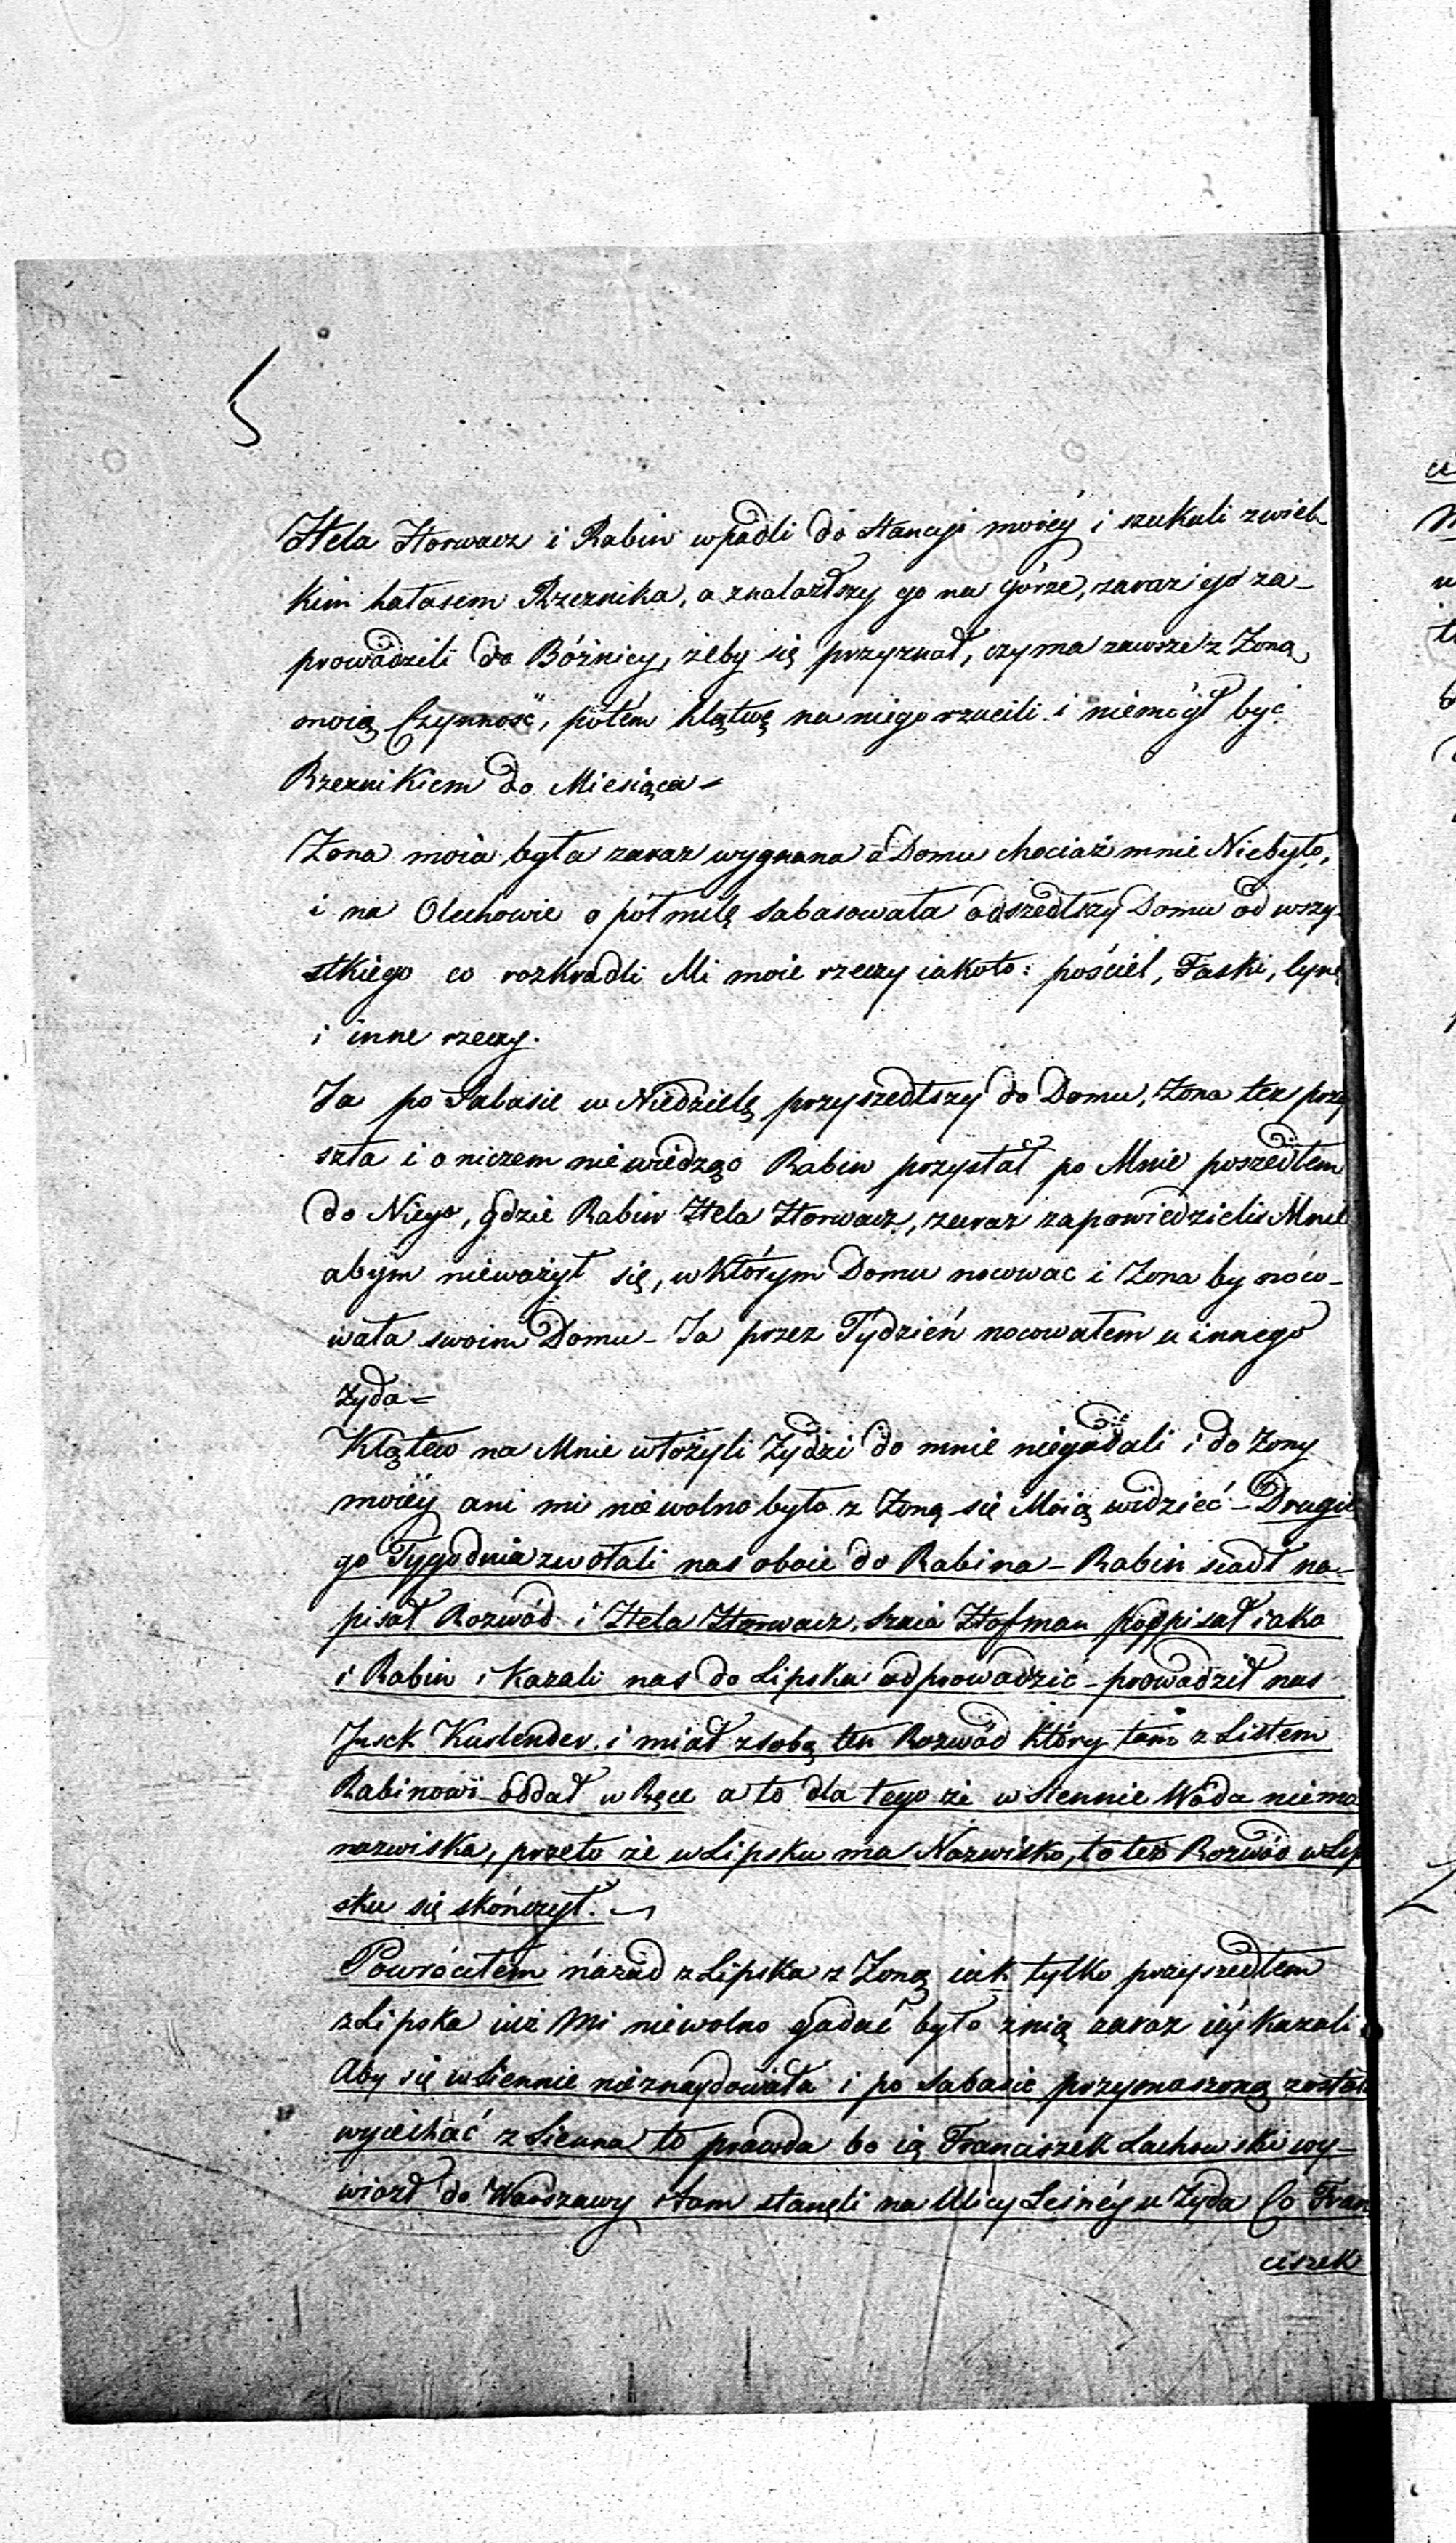 5
Hela Horwacz i Rabin wpadli do stancyi moiéy i szukali zwiel-
kim hałasem Rzeznika, a znalazłszy go na górze, zaraz iego za-
prowadzili do Bóżnicy, żeby się przyznał, czy ma zawsze z Zoną
moią Czynność, potem klątwę na niego rzucili i niemógł być
Rzeznikiem do Miesiąca =
Zona moia była zaraz wygnana z Domu chociaż mnie Niebyło,
i na Olechowie o półmilę Sabasowała odszedłszy Domu od wszy-
stkiego co rozkradli Mi moie rzeczy iakoto: pościel, Faski,
i inne rzeczy.
Ja po Sabasie w Niedzielę przyszedłszy do Domu, Zona tez przy
szła i o niczem niewiedząc Rabin przysłał po Mnie poszedłem
do Niego, gdzie Rabin Hela Horwacz, zaraz zapowiedzieli Mnie
abym nieważył się, w którym Domu nocować i Zona by noco-
wała swoim Domu - Ja przez Tydzień nocowałem u innego
Zyda =
Klątew na Mnie włożyli Zydzi do mnie niegadali i do Zony
moiéy ani mi niewolno było z Zoną się Moią widzieć - Drugie
go Tygodnia zwołali nas oboie do Rabina - Rabin siadł na-
pisał Rozwód i Hela Horwacz, Szaia Hofman podpisał iako
i Rabin i Kazali nas do Lipska odprowadzić - prowadził nas
Jusek Kurlender i miał zsobą ten Rozwód który tam z Listem
Rabinowi oddał w Ręce a to dla tego że w Siennie Woda niema
nazwiska, przeto że w Lipsku ma Nazwisko, to też Rozwód w Lip
sku się skończył.
Powróciłem názad z Lipska z Zoną iak tylko przyszedłem
z Lipska iuż Mi niewolno gadać było znią zaraz iéy kazali
Aby się w Siennie nieznaydowała i po Sabasie przymuszoną została
wyiechać z Sienna to prawda bo ią Franciszek Lachowski wy-
wiozł do Warszawy i tam stanęli na Ulicy Leśnéy u Zyda Co Fran
ciszek